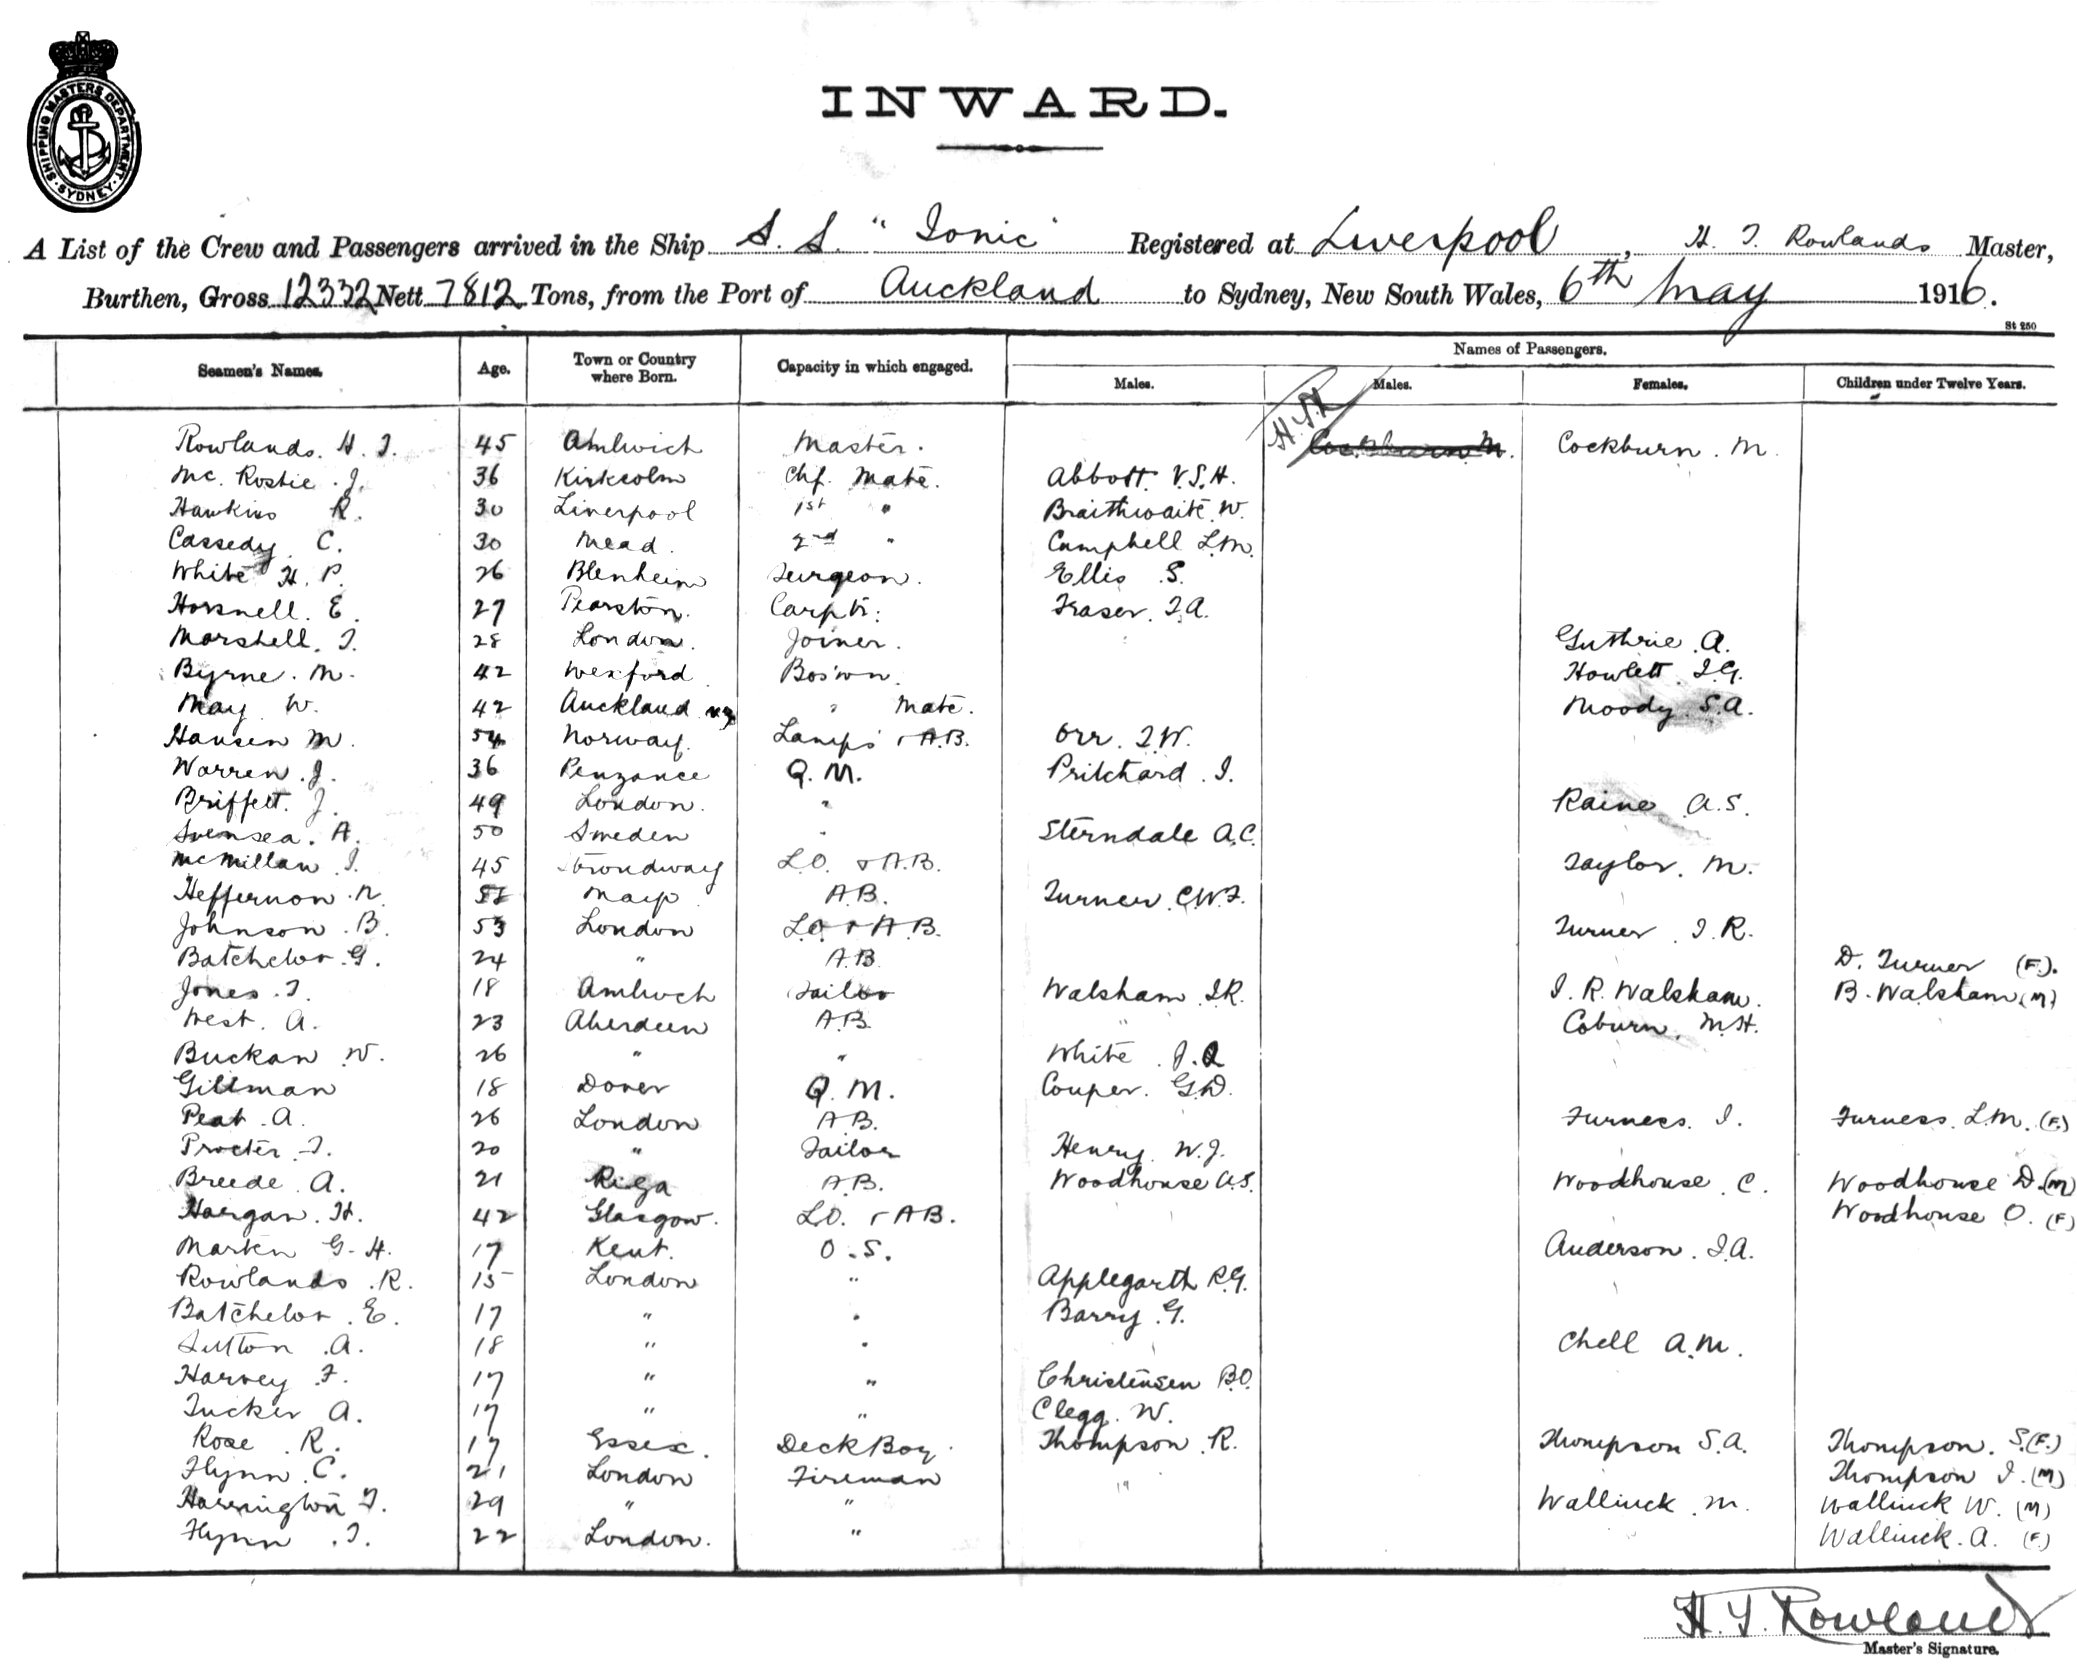 SHIPPING MASTERS DEPARTMENT · SYDNEY ·
INWARD.
A List of the Crew and Passengers arrived in the Ship S. S. "Ionic" Registered at Liverpool, H. T. Rowlands Master,
Burthen, Gross 12332 Nett 7812 Tons, from the Port of Auckland to Sydney, New South Wales, 6th May 1916.
St 250
Names of Passengers.
Seamen's Names. Age. Town or Country where Born. Capacity in which engaged. Males. Males. Females. Children under Twelve Years.
H.T.R
Rowlands. H. T. 45 Amlwich Master. Cockburn M. Cockburn. M.
Mc. Rostie. J. 36 Kirkcolm Chf. Mate. Abbott. V.S.H.
Hawkins R. 30 Liverpool 1st " Braithwaite. W.
Cassedy. C. 30 Mead. 2nd " Campbell L.M.
White H. P. 26 Blenheim Surgeon. Ellis S.
Horsnell. E. 27 Pearston. Carptr. Fraser. T.A.
Marshell. T. 28 London. Joiner. Guthrie. A.
Byrne. M. 42 Wexford Bos'wn. Howlett. I.G.
May W. 42 Auckland NZ " Mate. Moody. S.A.
Hansen M. 54 Norway. Lamps & A.B. Orr. T.W.
Warren. J. 36 Penzance Q. M. Pritchard. I.
Briffett. J. 49 London. " Raine A.S.
Svensea. A. 50 Sweden " Sterndale A.C.
McMillan. J. 45 L.O. & A.B. Taylor. M.
Heffernon. N. Mayo A.B. Turner. C.W.F.
Johnson. B. 53 London L.O. & A.B. Turner. I.R.
Batchelor. G. 24 " A.B. D. Turner (F.).
Jones. T. 18 Amlwch Sailor Walsham. I.R. I. R. Walsham. B. Walsham (M)
West. A. 23 Aberdeen A.B. Coburn. M.H.
Buckan W. 26 " " White. J.
Gillman 18 Dover Q. M. Couper. G.D.
Peat. A. 26 London A.B. Furness. I. Furness. L.M. (F.)
Procter. T. 20 " Sailor Henry. W.J.
Breede. A. 21 Riga A.B. Woodhouse A.S. Woodhouse. C. Woodhouse D. (M)
Horgan. H. 42 Glasgow. L.O. & A.B. Woodhouse O. (F)
Marten G. H. 17 Kent. O.S. Anderson. I.A.
Rowlands. R. 15 London " Applegarth R.G.
Batchelor. E. 17 " " Barry. G.
Sutton. A. 18 " " Chell A.M.
Harvey. F. 17 " " Christensen B.O.
Tucker A. 17 " " Clegg. W.
Rose. R. 17 Essex. Deck Boy. Thompson. R. Thompson S.A. Thompson. S. (F.)
Flynn. C. 21 London Fireman Thompson I. (M)
Harrington T. 29 " " Wallinck. M. Wallinck W. (M)
Flynn. T. 22 London. " Wallinck. A. (F.)
H. T. Rowlands
Master's Signature.